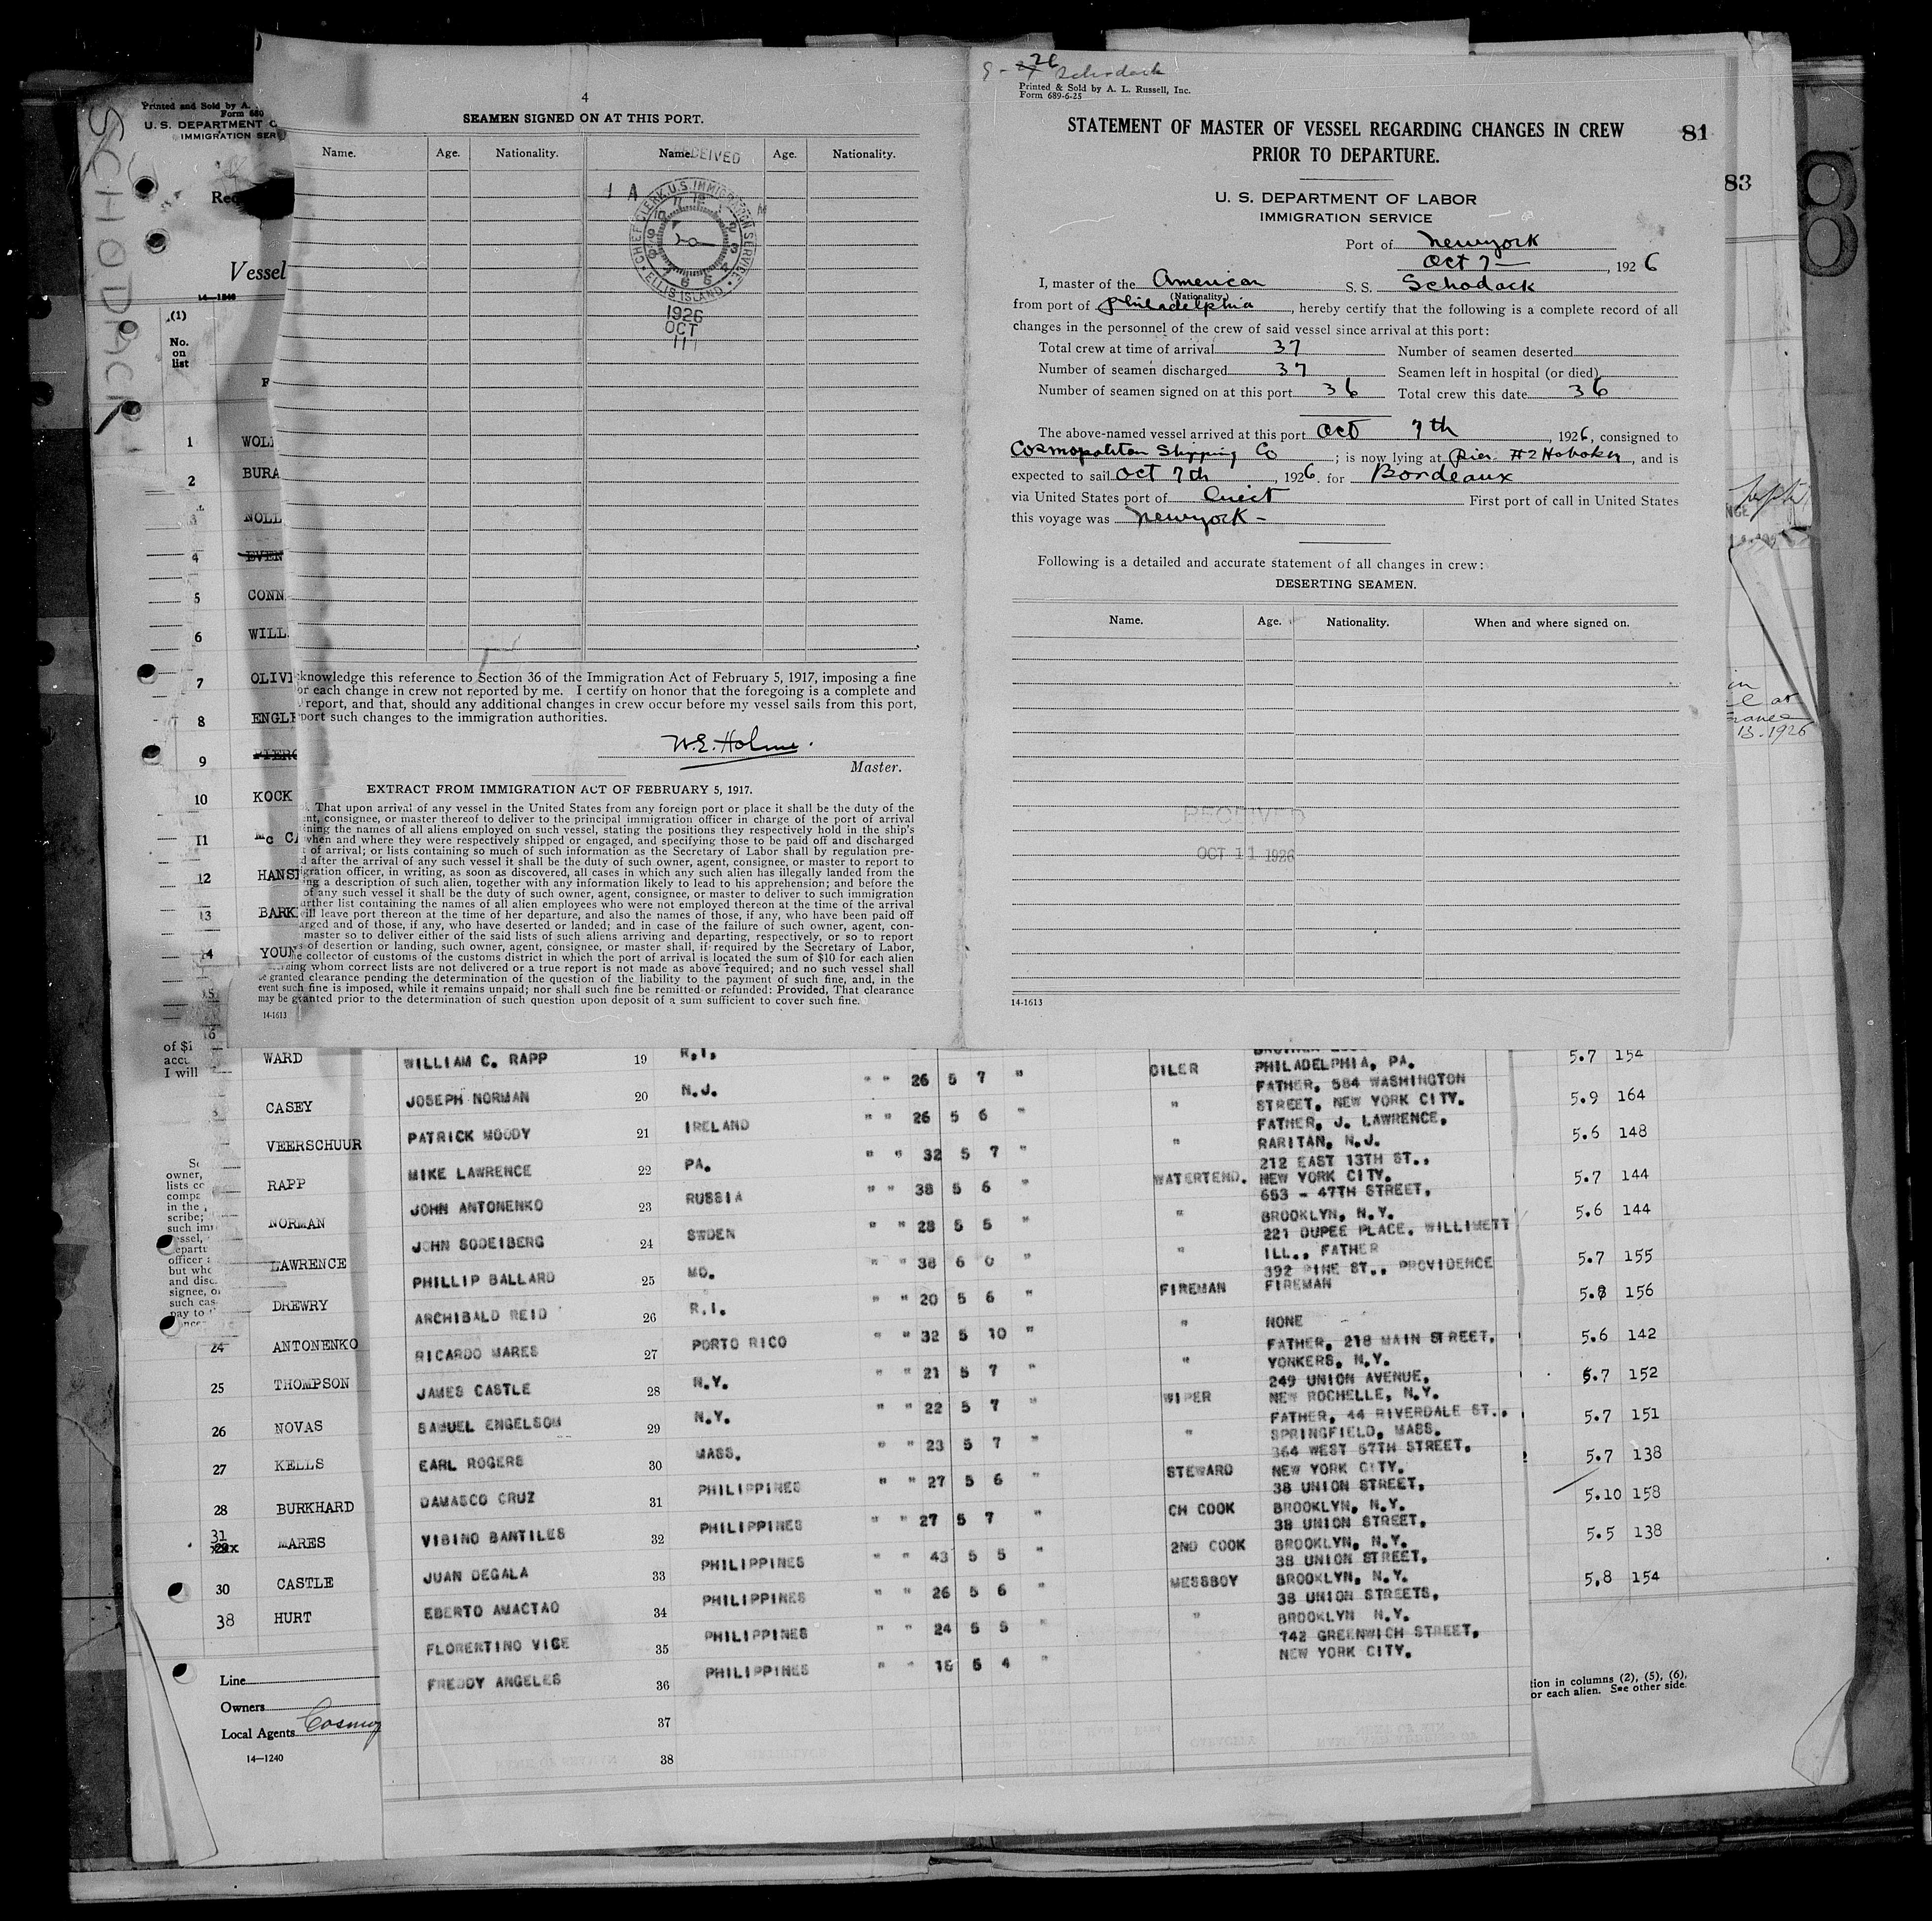 SCHODACK
Printed and Sold by A.
Form 680
U. S. DEPARTMENT O
IMMIGRATION SER
Req
Vessel
14—1240
(1)
No.
on
list
1 WOLF
2 BURA
3 NOLL
4 EVEN
5 CONN
6 WILL
7 OLIVE
8 ENGLE
9 PIERC
10 KOCK
11 Mc CA
12 HANSE
13 BARK
14 YOUN
15
16
4
SEAMEN SIGNED ON AT THIS PORT.
Name. Age. Nationality. Name. Age. Nationality.
RECEIVED
CHIEF CLERK U.S. IMMIGRATION SERVICE
ELLIS ISLAND
1926
OCT
11
cknowledge this reference to Section 36 of the Immigration Act of February 5, 1917, imposing a fine
or each change in crew not reported by me. I certify on honor that the foregoing is a complete and
report, and that, should any additional changes in crew occur before my vessel sails from this port,
port such changes to the immigration authorities.
W.E. Holme.
Master.
EXTRACT FROM IMMIGRATION ACT OF FEBRUARY 5, 1917.
. That upon arrival of any vessel in the United States from any foreign port or place it shall be the duty of the
ent, consignee, or master thereof to deliver to the principal immigration officer in charge of the port of arrival
ining the names of all aliens employed on such vessel, stating the positions they respectively hold in the ship's
when and where they were respectively shipped or engaged, and specifying those to be paid off and discharged
t of arrival; or lists containing so much of such information as the Secretary of Labor shall by regulation pre-
d after the arrival of any such vessel it shall be the duty of such owner, agent, consignee, or master to report to
igration officer, in writing, as soon as discovered, all cases in which any such alien has illegally landed from the
ng a description of such alien, together with any information likely to lead to his apprehension; and before the
of any such vessel it shall be the duty of such owner, agent, consignee, or master to deliver to such immigration
urther list containing the names of all alien employees who were not employed thereon at the time of the arrival
will leave port thereon at the time of her departure, and also the names of those, if any, who have been paid off
arged and of those, if any, who have deserted or landed; and in case of the failure of such owner, agent, con-
master so to deliver either of the said lists of such aliens arriving and departing, respectively, or so to report
s of desertion or landing, such owner, agent, consignee, or master shall, if required by the Secretary of Labor,
he collector of customs of the customs district in which the port of arrival is located the sum of $10 for each alien
rning whom correct lists are not delivered or a true report is not made as above required; and no such vessel shall
be granted clearance pending the determination of the question of the liability to the payment of such fine, and, in the
event such fine is imposed, while it remains unpaid; nor shall such fine be remitted or refunded: Provided, That clearance
may be granted prior to the determination of such question upon deposit of a sum sufficient to cover such fine.
14-1613
Schodack
Printed & Sold by A. L. Russell, Inc.
Form 689-6-25
STATEMENT OF MASTER OF VESSEL REGARDING CHANGES IN CREW
PRIOR TO DEPARTURE.
81
83
U. S. DEPARTMENT OF LABOR
IMMIGRATION SERVICE
Port of Newyork
Oct 7 — , 1926
I, master of the American S. S. Schodack
(Nationality)
from port of Philadelphia, hereby certify that the following is a complete record of all
changes in the personnel of the crew of said vessel since arrival at this port:
Total crew at time of arrival 37 Number of seamen deserted
Number of seamen discharged 37 Seamen left in hospital (or died)
Number of seamen signed on at this port 36 Total crew this date 36
The above-named vessel arrived at this port Oct 7th, 1926, consigned to
Cosmopolitan Shipping Co ; is now lying at Pier #2 Hoboken, and is
expected to sail Oct 7th, 1926. for Bordeaux
via United States port of Direct First port of call in United States
this voyage was Newyork -
Following is a detailed and accurate statement of all changes in crew:
DESERTING SEAMEN.
Name. Age. Nationality. When and where signed on.
RECEIVED
OCT 11 1926
14-1613
13.1926
WARD WILLIAM C. RAPP 19 R.I. OILER PHILADELPHIA, PA. 5.7 154
" " 26 5 7 " FATHER, 584 WASHINGTON
CASEY JOSEPH NORMAN 20 N.J. " STREET, NEW YORK CITY. 5.9 164
" " 26 5 6 " FATHER, J. LAWRENCE,
VEERSCHUUR PATRICK MOODY 21 IRELAND " RARITAN, N.J. 5.6 148
" " 32 5 7 " 212 EAST 13TH ST.,
RAPP MIKE LAWRENCE 22 PA. WATERTEND. NEW YORK CITY. 5.7 144
" " 38 5 6 " 653 - 47TH STREET,
NORMAN JOHN ANTONENKO 23 RUSSIA " BROOKLYN, N.Y. 5.6 144
" " 28 5 5 " 221 DUPEE PLACE. WILLIMETT
LAWRENCE JOHN SODEIBERG 24 SWDEN " ILL., FATHER 5.7 155
" " 38 6 0 " 392 PINE ST., PROVIDENCE
DREWRY PHILLIP BALLARD 25 MO. FIREMAN FIREMAN 5.8 156
" " 20 5 6 "
24 ANTONENKO ARCHIBALD REID 26 R.I. " NONE 5.6 142
" " 32 5 10 " FATHER, 218 MAIN STREET,
25 THOMPSON RICARDO MARES 27 PORTO RICO " YONKERS, N.Y. 5.7 152
" " 21 5 7 " 249 UNION AVENUE,
26 NOVAS JAMES CASTLE 28 N.Y. WIPER NEW ROCHELLE, N.Y. 5.7 151
" " 22 5 7 " FATHER, 44 RIVERDALE ST.,
27 KELLS SAMUEL ENGELSOM 29 N.Y. " SPRINGFIELD, MASS. 5.7 138
" " 23 5 7 " 364 WEST 57TH STREET,
28 BURKHARD EARL ROGERS 30 MASS. STEWARD NEW YORK CITY. 5.10 158
" " 27 5 6 " 38 UNION STREET,
31 MARES DAMASCO CRUZ 31 PHILIPPINES CH COOK BROOKLYN, N.Y. 5.5 138
" " 27 5 7 " 38 UNION STREET,
30 CASTLE VIBINO BANTILES 32 PHILIPPINES 2ND COOK BROOKLYN, N.Y. 5,8 154
" " 43 5 5 " 38 UNION STREET,
38 HURT JUAN DEGALA 33 PHILIPPINES MESSBOY BROOKLYN, N.Y.
" " 26 5 6 " 38 UNION STREETS,
EBERTO AMACTAO 34 PHILIPPINES " BROOKLYN N.Y.
" " 24 5 5 " 742 GREENWICH STREET,
FLORENTINO VICE 35 PHILIPPINES NEW YORK CITY.
" " 18 5 4 "
FREDDY ANGELES 36 PHILIPPINES
37
38
of $1
I will
owner,
in the
scribe;
officer a
and disc
signee, o
such cas
pay to
Line
Owners
Local Agents Cosmop
14—1240
tion in columns (2), (5), (6),
or each alien. See other side.